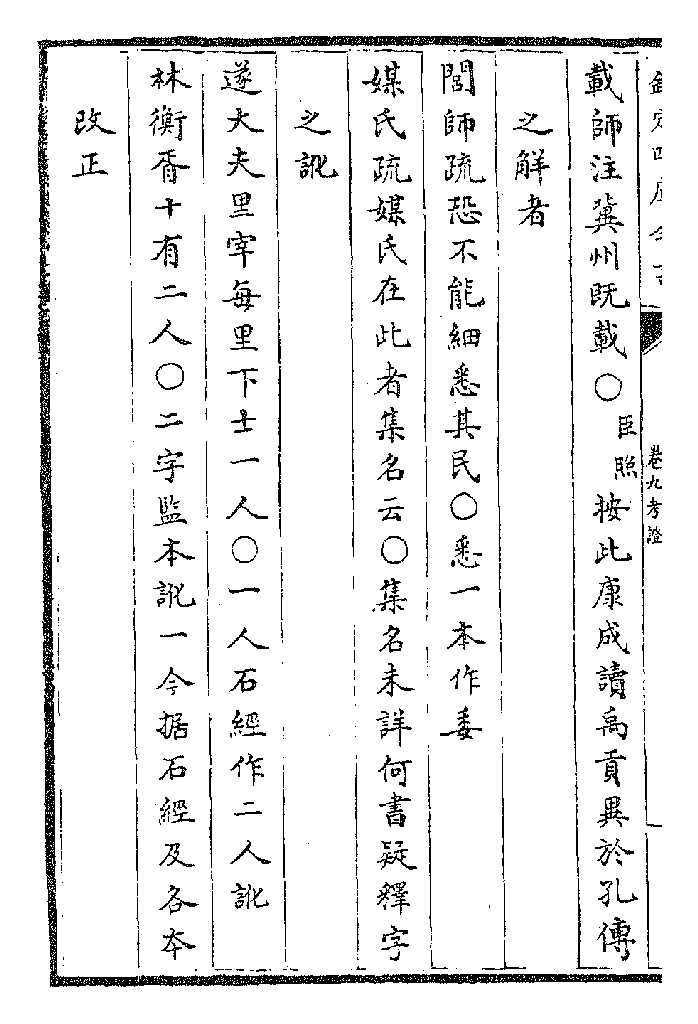 欽定四庫全書
卷九考證
載師注冀州既載○臣照按此康成讀禹貢異於孔傳
之解者
閭師疏恐不能細悉其民○悉一本作委
媒氏疏媒氏在此者集名云○集名未詳何書疑釋字
之訛
遂大夫里宰每里下士一人○一人石經作二人訛
林衡胥十有二人○二字監本訛一今据石經及各本
改正